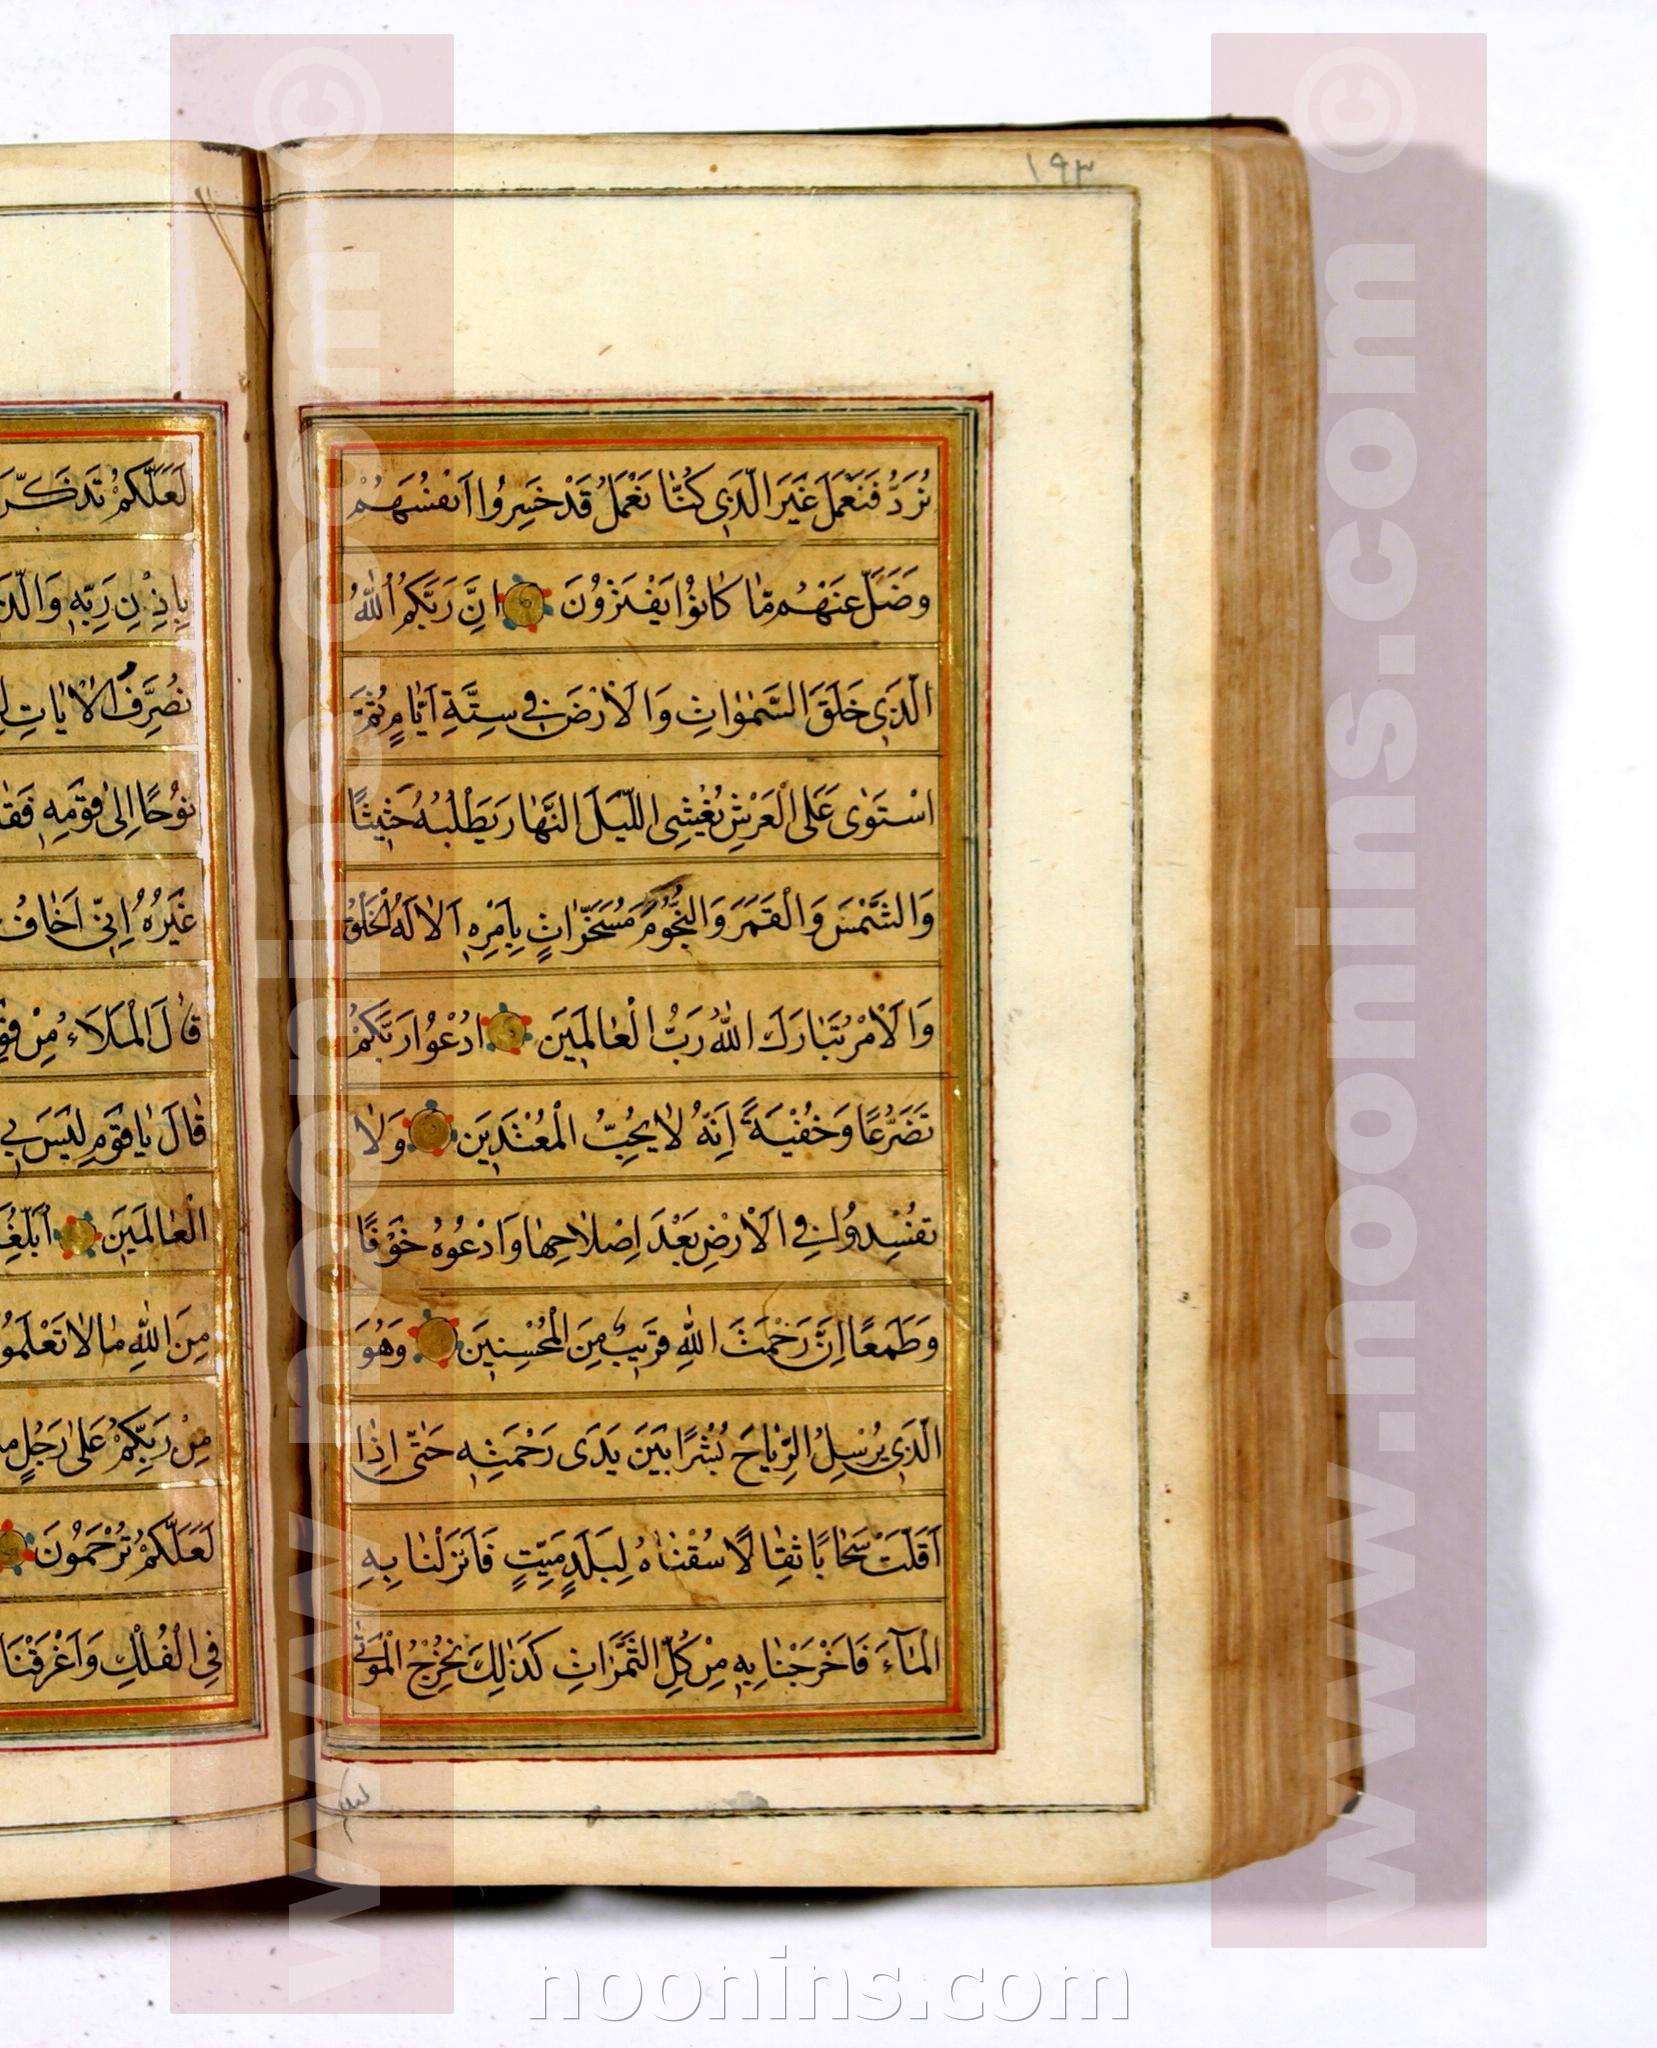 ١٩٣
نُرَدُّ فَنَعْمَلَ غَيْرَ الَّذِي كُنَّا نَعْمَلُ قَدْ خَسِرُوا اَنْفُسَهُمْ
وَضَلَّ عَنْهُمْ مَا كَانُوا يَفْتَرُونَ اِنَّ رَبَّكُمُ اللّٰهُ
الَّذِي خَلَقَ السَّمٰوَاتِ وَالْاَرْضَ فِي سِتَّةِ اَيَّامٍ ثُمَّ
اسْتَوٰى عَلَى الْعَرْشِ يُغْشِي اللَّيْلَ النَّهَارَ يَطْلُبُهُ حَثِيثًا
وَالشَّمْسَ وَالْقَمَرَ وَالنُّجُومَ مُسَخَّرَاتٍ بِاَمْرِهِ اَلَا لَهُ الْخَلْقُ
وَالْاَمْرُ تَبَارَكَ اللّٰهُ رَبُّ الْعَالَمِينَ اُدْعُوا رَبَّكُمْ
تَضَرُّعًا وَخُفْيَةً اِنَّهُ لَا يُحِبُّ الْمُعْتَدِينَ وَلَا
تُفْسِدُوا فِي الْاَرْضِ بَعْدَ اِصْلَاحِهَا وَادْعُوهُ خَوْفًا
وَطَمَعًا اِنَّ رَحْمَتَ اللّٰهِ قَرِيبٌ مِنَ الْمُحْسِنِينَ وَهُوَ
الَّذِي يُرْسِلُ الرِّيَاحَ بُشْرًا بَيْنَ يَدَيْ رَحْمَتِهِ حَتّٰى اِذَا
اَقَلَّتْ سَحَابًا ثِقَالًا سُقْنَاهُ لِبَلَدٍ مَيِّتٍ فَاَنْزَلْنَا بِهِ
الْمَآءَ فَاَخْرَجْنَا بِهِ مِنْ كُلِّ الثَّمَرَاتِ كَذٰلِكَ نُخْرِجُ الْمَوْتٰى
لَعَلَّكُمْ تَذَكَّرُ
بِاِذْنِ رَبِّهِ وَالَّذِ
نُصَرِّفُ الْاٰيَاتِ لِ
نُوحًا اِلٰى قَوْمِهِ فَقَا
غَيْرُهُ اِنِّي اَخَافُ
قَالَ الْمَلَاُ مِنْ قَوْ
قَالَ يَا قَوْمِ لَيْسَ بِي
الْعَالَمِينَ اُبَلِّغُ
مِنَ اللّٰهِ مَا لَا تَعْلَمُو
مِنْ رَبِّكُمْ عَلٰى رَجُلٍ مِ
لَعَلَّكُمْ تُرْحَمُونَ
فِي الْفُلْكِ وَاَغْرَقْنَا
www.noonins.com ©
www.noonins.com ©
noonins.com